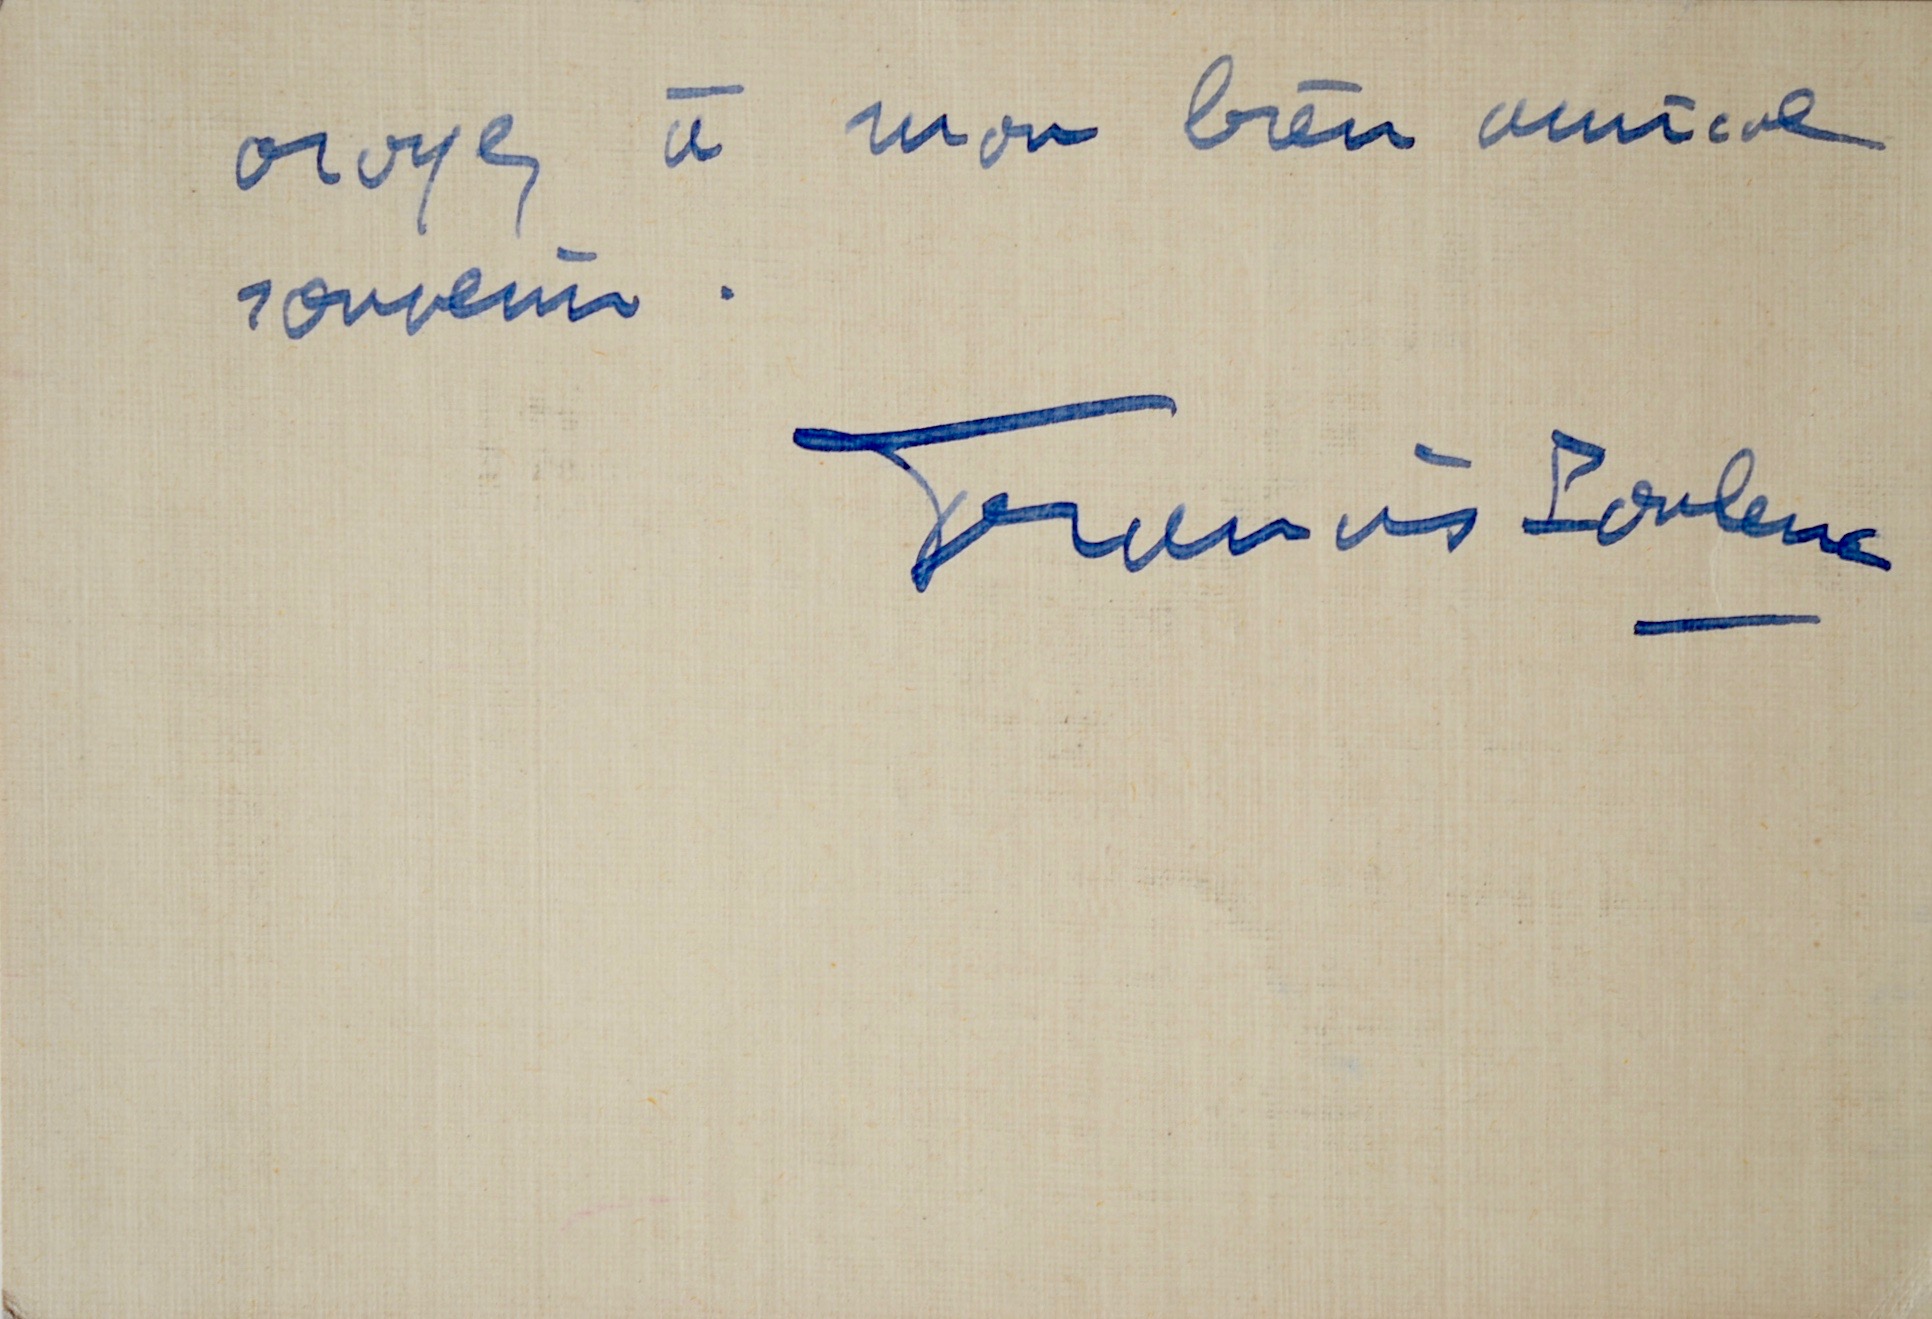 croyez à mon bien amical
souvenir.
Francis Poulenc